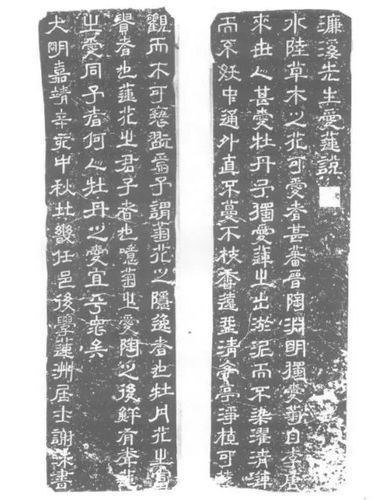 濂溪先生愛蓮說
水陸草木之花可愛者甚蕃晉陶淵明獨愛菊自李唐
來世人甚愛牡丹予獨愛蓮之出淤泥而不染濯清漣
而不妖中通外直不蔓不枝香遠益清亭亭淨植可遠
觀而不可褻翫焉予謂菊花之隱逸者也牡丹花之富
貴者也蓮花之君子者也噫菊之愛陶之後鮮有聞蓮
之愛同予者何人牡丹之愛宜乎眾矣
大明嘉靖辛亥中秋任邑後學蓮洲居士謝書